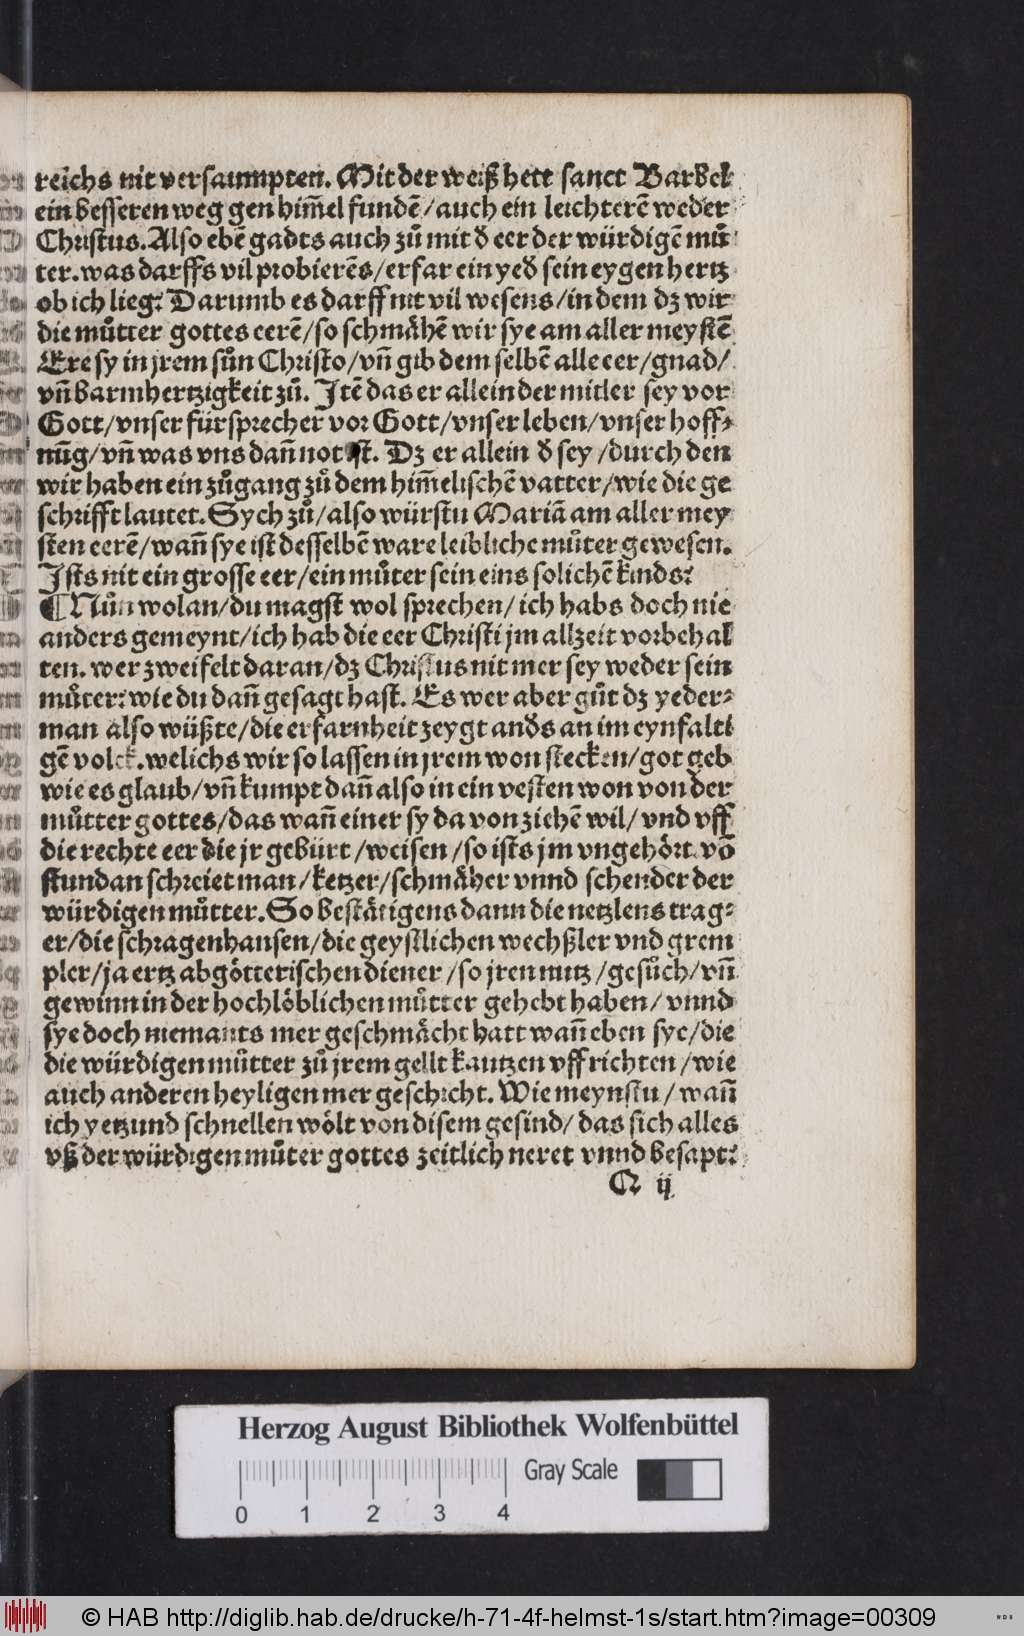 reichs nit versaumpten. Mit der weiß hett sanct Barbel
ein besseren weg gen him̃el fundẽ/auch ein leichterẽ weder
Christus. Also ebẽ gadts auch zů mit đ eer der würdigẽ můt
ter. was darffs vil probierẽs/erfar ein yeđ sein eygen hertz
ob ich lieg? Darumb es darff nit vil wesens/in dem dz wir
die můtter gottes eerẽ/so schmåhẽ wir sye am aller meystẽ
Ere sy in jrem sůn Christo/vñ gib dem selbẽ alle eer/gnad/
vñ barmhertzigkeit zů. Jtẽ das er allein der mitler sey vor
Gott/vnser fürsprecher vor Gott/vnser leben/vnser hoff⸗
nũg/vñ was vns dañ not ist. Dz er allein đ sey/durch den
wir haben ein zůgang zů dem him̃elischẽ vatter/wie die ge
schrifft lautet. Sych zů/also würstu Mariã am aller mey
sten eerẽ/wañ sye ist desselbẽ ware leibliche můter gewesen.
Jsts nit ein grosse eer/ein můter sein eins solichẽ kinds?
¶ Nůn wolan/du magst wol sprechen/ich habs doch nie
anders gemeynt/ich hab die eer Christi jm allzeit vorbehal
ten. wer zweifelt daran/dz Christus nit mer sey weder sein
můter? wie du dañ gesagt hast. Es wer aber gůt dz yeder⸗
man also wüßte/die erfarnheit zeygt anđs an im eynfalti
gẽ volck. welichs wir so lassen in jrem won stecken/got geb
wie es glaub/vñ kumpt dañ also in ein vesten won von der
můtter gottes/das wañ einer sy da von ziehẽ wil/vnd vff
die rechte eer die jr gebürt/weisen/so ists jm vngehört. võ
stundan schreiet man/ketzer/schmåher vnnd schender der
würdigen můtter. So beståtigens dann die netzlens trag⸗
er/die schragenhansen/die geystlichen wechßler vnd grem
pler/ja ertz abgötterischen diener/so jren nutz/gesůch/vñ
gewinn in der hochlöblichen můtter gehebt haben/vnnd
sye doch niemants mer geschmåcht hatt wañ eben sye/die
die würdigen můtter zů jrem gellt kautzen vffrichten/wie
auch anderen heyligen mer geschicht. Wie meynstu/wañ
ich yetzund schnellen wölt von disem gesind/das sich alles
vß der würdigen můter gottes zeitlich neret vnnd besapt?
Q ij
Herzog August Bibliothek Wolfenbüttel
Gray Scale
0 1 2 3 4
© HAB http://diglib.hab.de/drucke/h-71-4f-helmst-1s/start.htm?image=00309